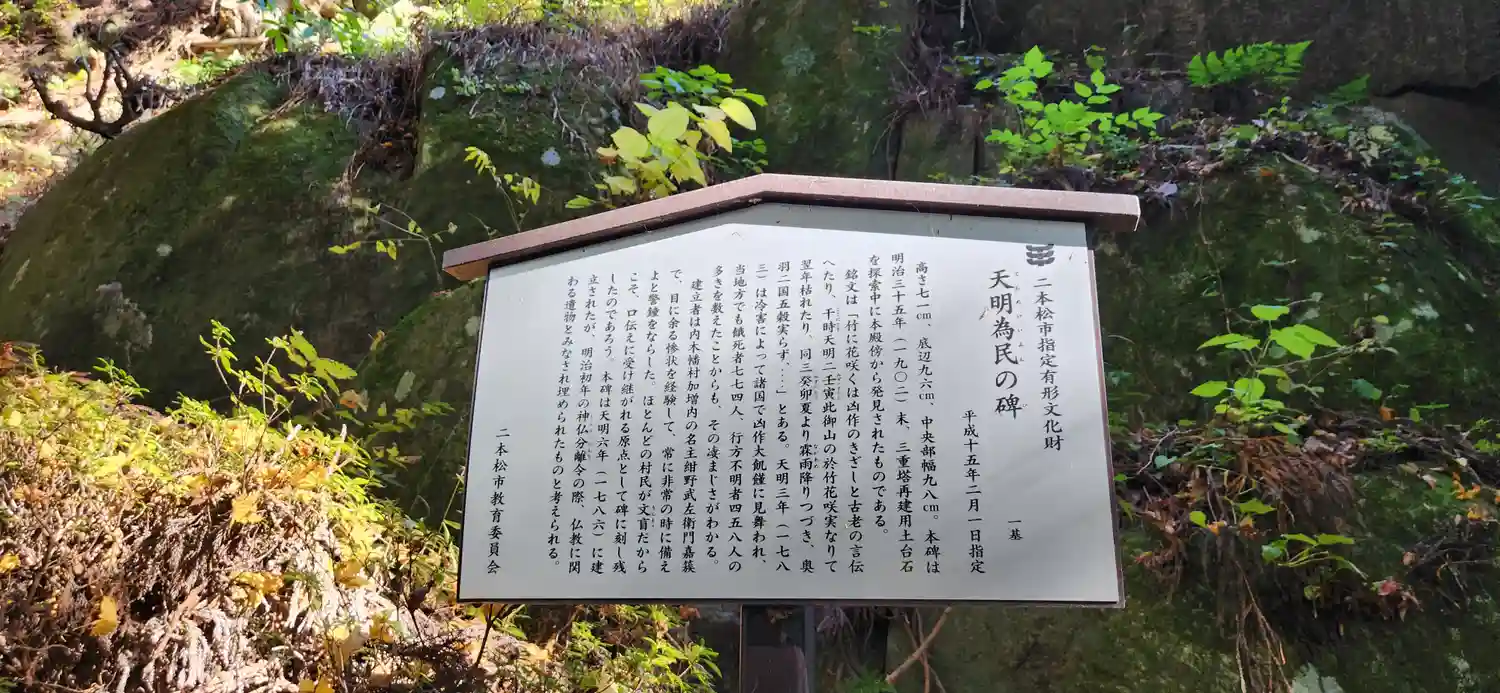 二本松市指定有形文化財
天明為民の碑
てんめいいみん
一基
平成十五年二月一日指定
高さ七一cm、底辺九六cm、中央部幅九八cm。本碑は
明治三十五年(一九〇二)末、三重塔再建用土台石
を探索中に本殿傍から発見されたものである。
銘文は「竹に花咲くは凶作のきざしと古老の言伝
へたり、干時天明二壬寅此御山の於竹花咲実なりて
翌年枯れたり、同三癸卯夏より霖雨降りつづき、奥
羽二国五穀実らず、‥‥」とある。天明三年(一七八
三)は冷害によって諸国で凶作大飢饉に見舞われ、
当地方でも餓死者七七四人、行方不明者四五八人の
多きを数えたことからも、その凄まじさがわかる。
建立者は内木幡村加増内の名主紺野武左衛門嘉篌
で、目に余る惨状を経験して、常に非常の時に備え
よと警鐘をならした。ほとんどの村民が文盲だから
こそ、口伝えに受け継がれる原点として碑に刻し残
したのであろう。本碑は天明六年(一七八六)に建
立されたが、明治初年の神仏分離令の際、仏教に関
わる遺物とみなされ埋められたものと考えられる。
二本松市教育委員会